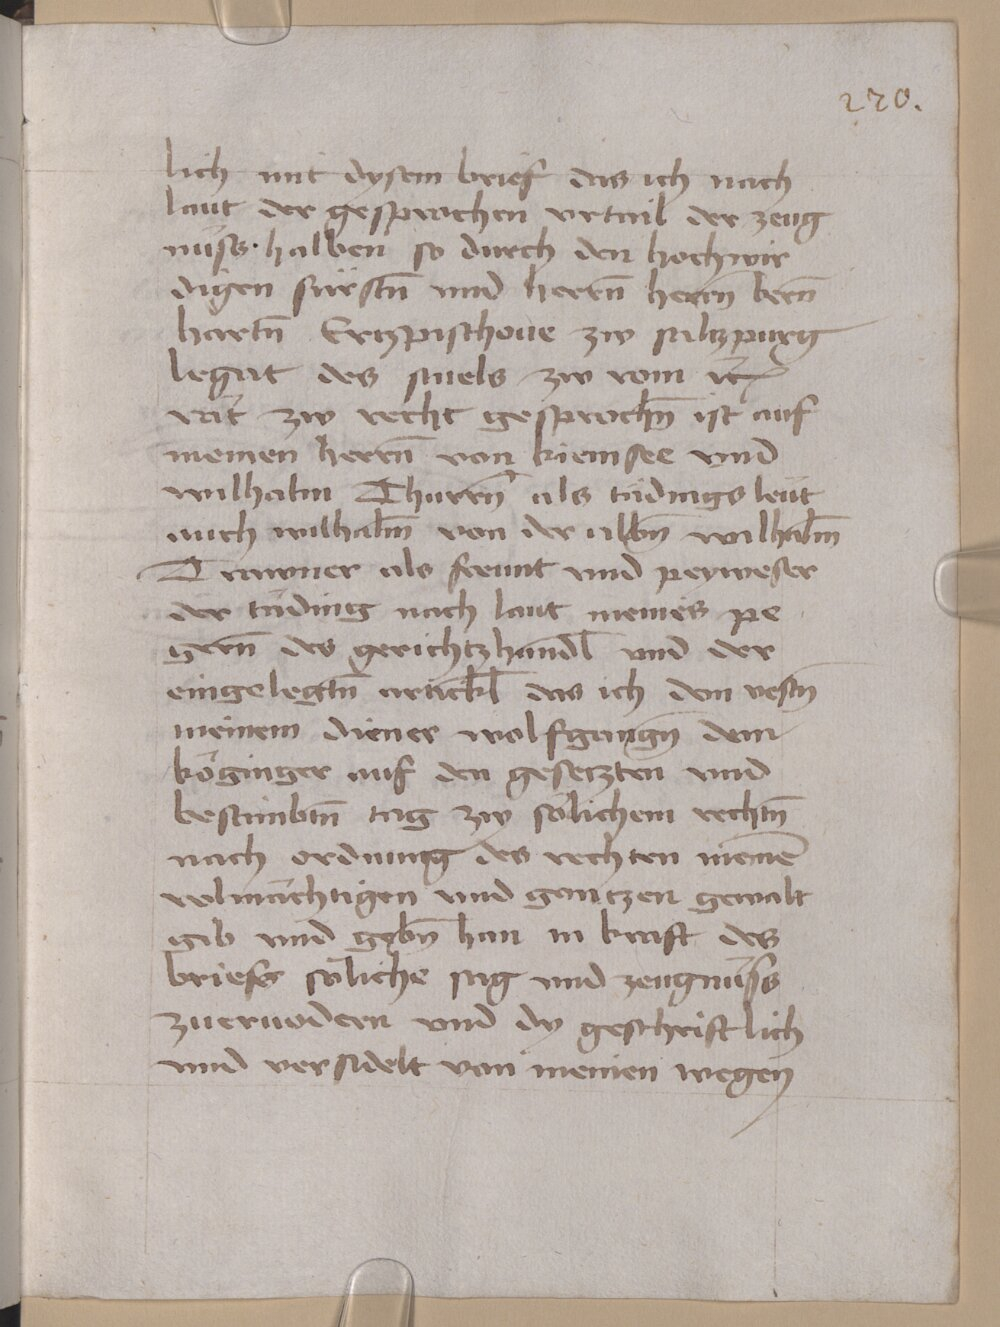 220.
lich mit dysem brief das ich nach
laut der gesprochen vrtail der zeug
nüss halben so durch den hochwir
digen fürstn̄ vnd herrn̄ herrn̄ bern̄
hartn̄ Ertzpischoue zw saltzpurg
legat des stuels zw rom
rāt zw recht gesprochn̄ ist auf
meinen herrn̄ von kiemsee vnd
wilhalm Thurrn̄ als tädings leüt
auch wilhalm̄ von der albn̄ wilhalm̄
Trawner als freunt vnd peyweser
der täding nach laut meines pe
gern̄ des gerichtzhandl vnd der
eingelegtn̄ artickl das ich dem vestn̄
meinem diener wolfgangn̄ dem
köginger auf den gesetzten vnd
bestimbtn̄ tag zw sölichem rechtn̄
nach ordnung des rechten meinē
volmächtigen vnd gantzen gewalt
gib vnd gebn̄ han in kraft des
briefs söliche sag vnd zeugnüss
zueruodern vnd dy geschriftlich
vnd versidelt von meinen wegen